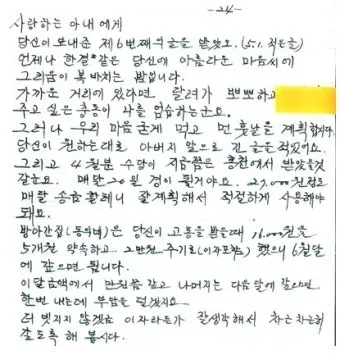 -24-
사랑하는 아내에게
당신이 보내준 제6번째의 글을 받았오. (5.1. 적은글)
언제나 한결같은 당신에 아름다운 마음씨에
그리움이 복바치는 밤입니다.
가까운 거리에 있다면 달려가 뽀뽀하고
주고 싶은 충동이 나를 엄습하는군요.
그러나 우리 마음 굳게 먹고 먼 훗날을 계획합시다.
당신이 원하는대로 아버지 앞으로 긴 글을 적었어요.
그리고 4월분 수당이 지금쯤은 충현에서 받았을것
같군요. 매달 20일 경이 될거야요. 27,000원정도
매달 송금할테니 잘 계획해서 적절하게 사용해야
돼요.
방아간집(동의댁)은 당신이 고통을 받을때 16,000원을
5개월 약속하고 2만원 주기로(이자포함) 했으니 6월달
에 갚으면 됩니다.
이달금액에서 만원쯤 갚고 나머지는 다음달에 갚으면
한번 내는데 부담을 덜겠지요.
더 빚지지 않겠금 이자라든가 잘생각해서 차근차근히
갚도록 해 봅시다.